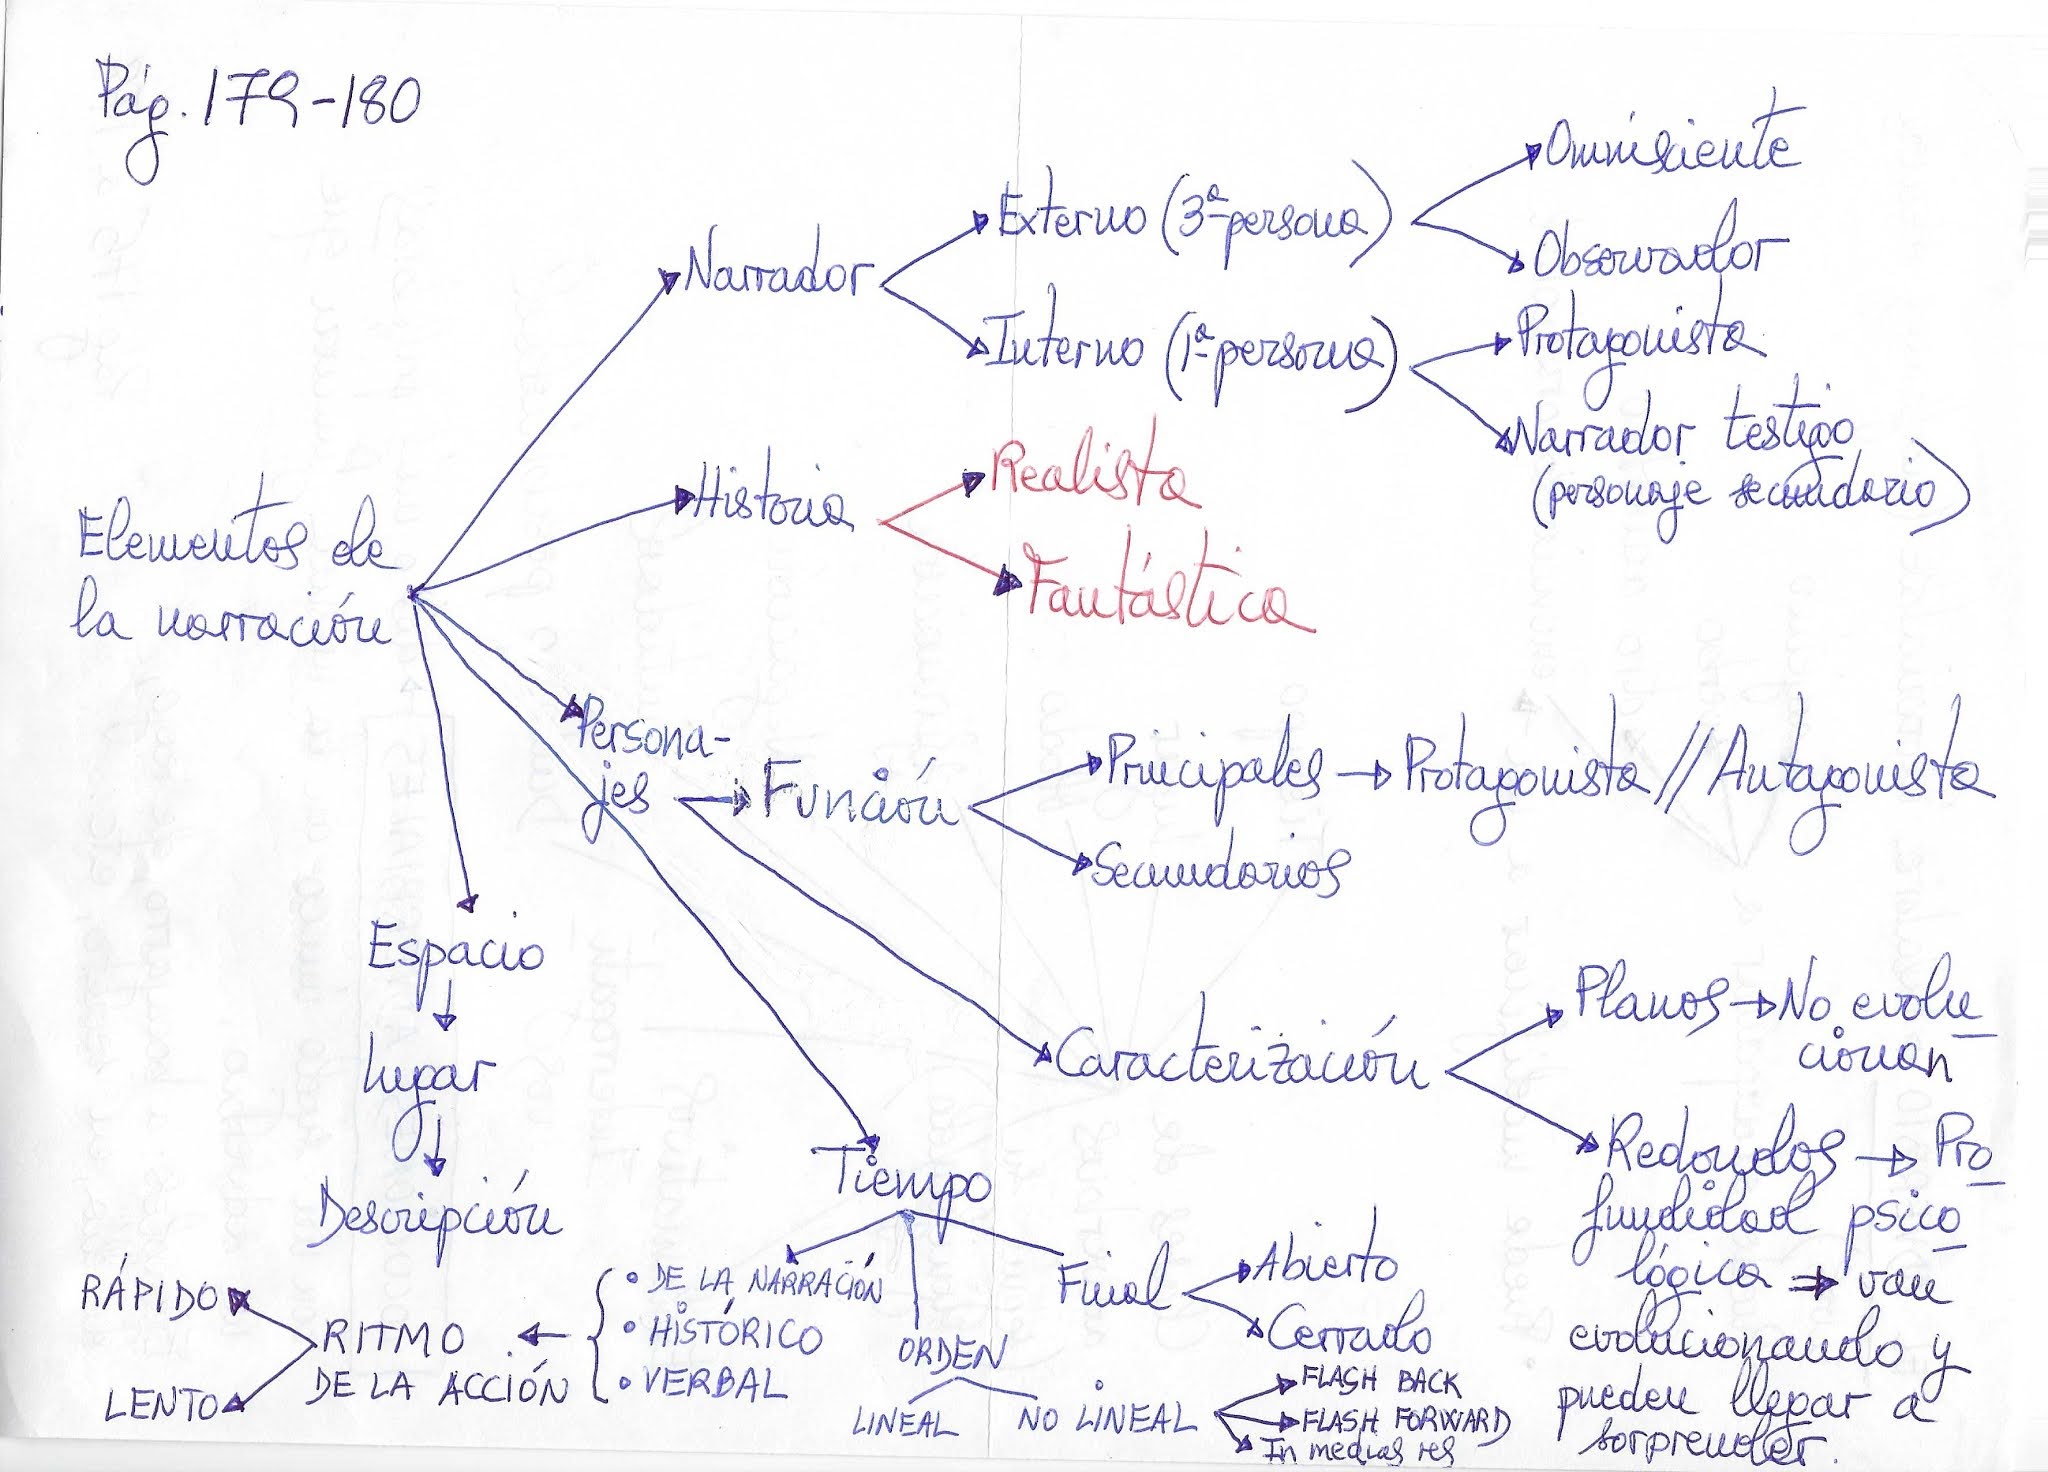 Pág. 179-180
Elementos de
la narración
Narrador
Externo (3ª persona)
Omnisciente
Observador
Interno (1ª persona)
Protagonista
Narrador testigo
(personaje secundario)
Historia
Realista
Fantástica
Persona-
jes
Función
Principales → Protagonista // Antagonista
Secundarios
Caracterización
Planos → No evolu
cionan
Redondos → Pro
fundidad psico
lógica ⇒ van
evolucionando y
pueden llegar a
sorprender.
Espacio
Lugar
Descripción
Tiempo
• DE LA NARRACIÓN
• HISTÓRICO
• VERBAL
RITMO
DE LA ACCIÓN
RÁPIDO
LENTO
ORDEN
LINEAL
NO LINEAL
FLASH BACK
FLASH FORWARD
In medias res
Final
Abierto
Cerrado